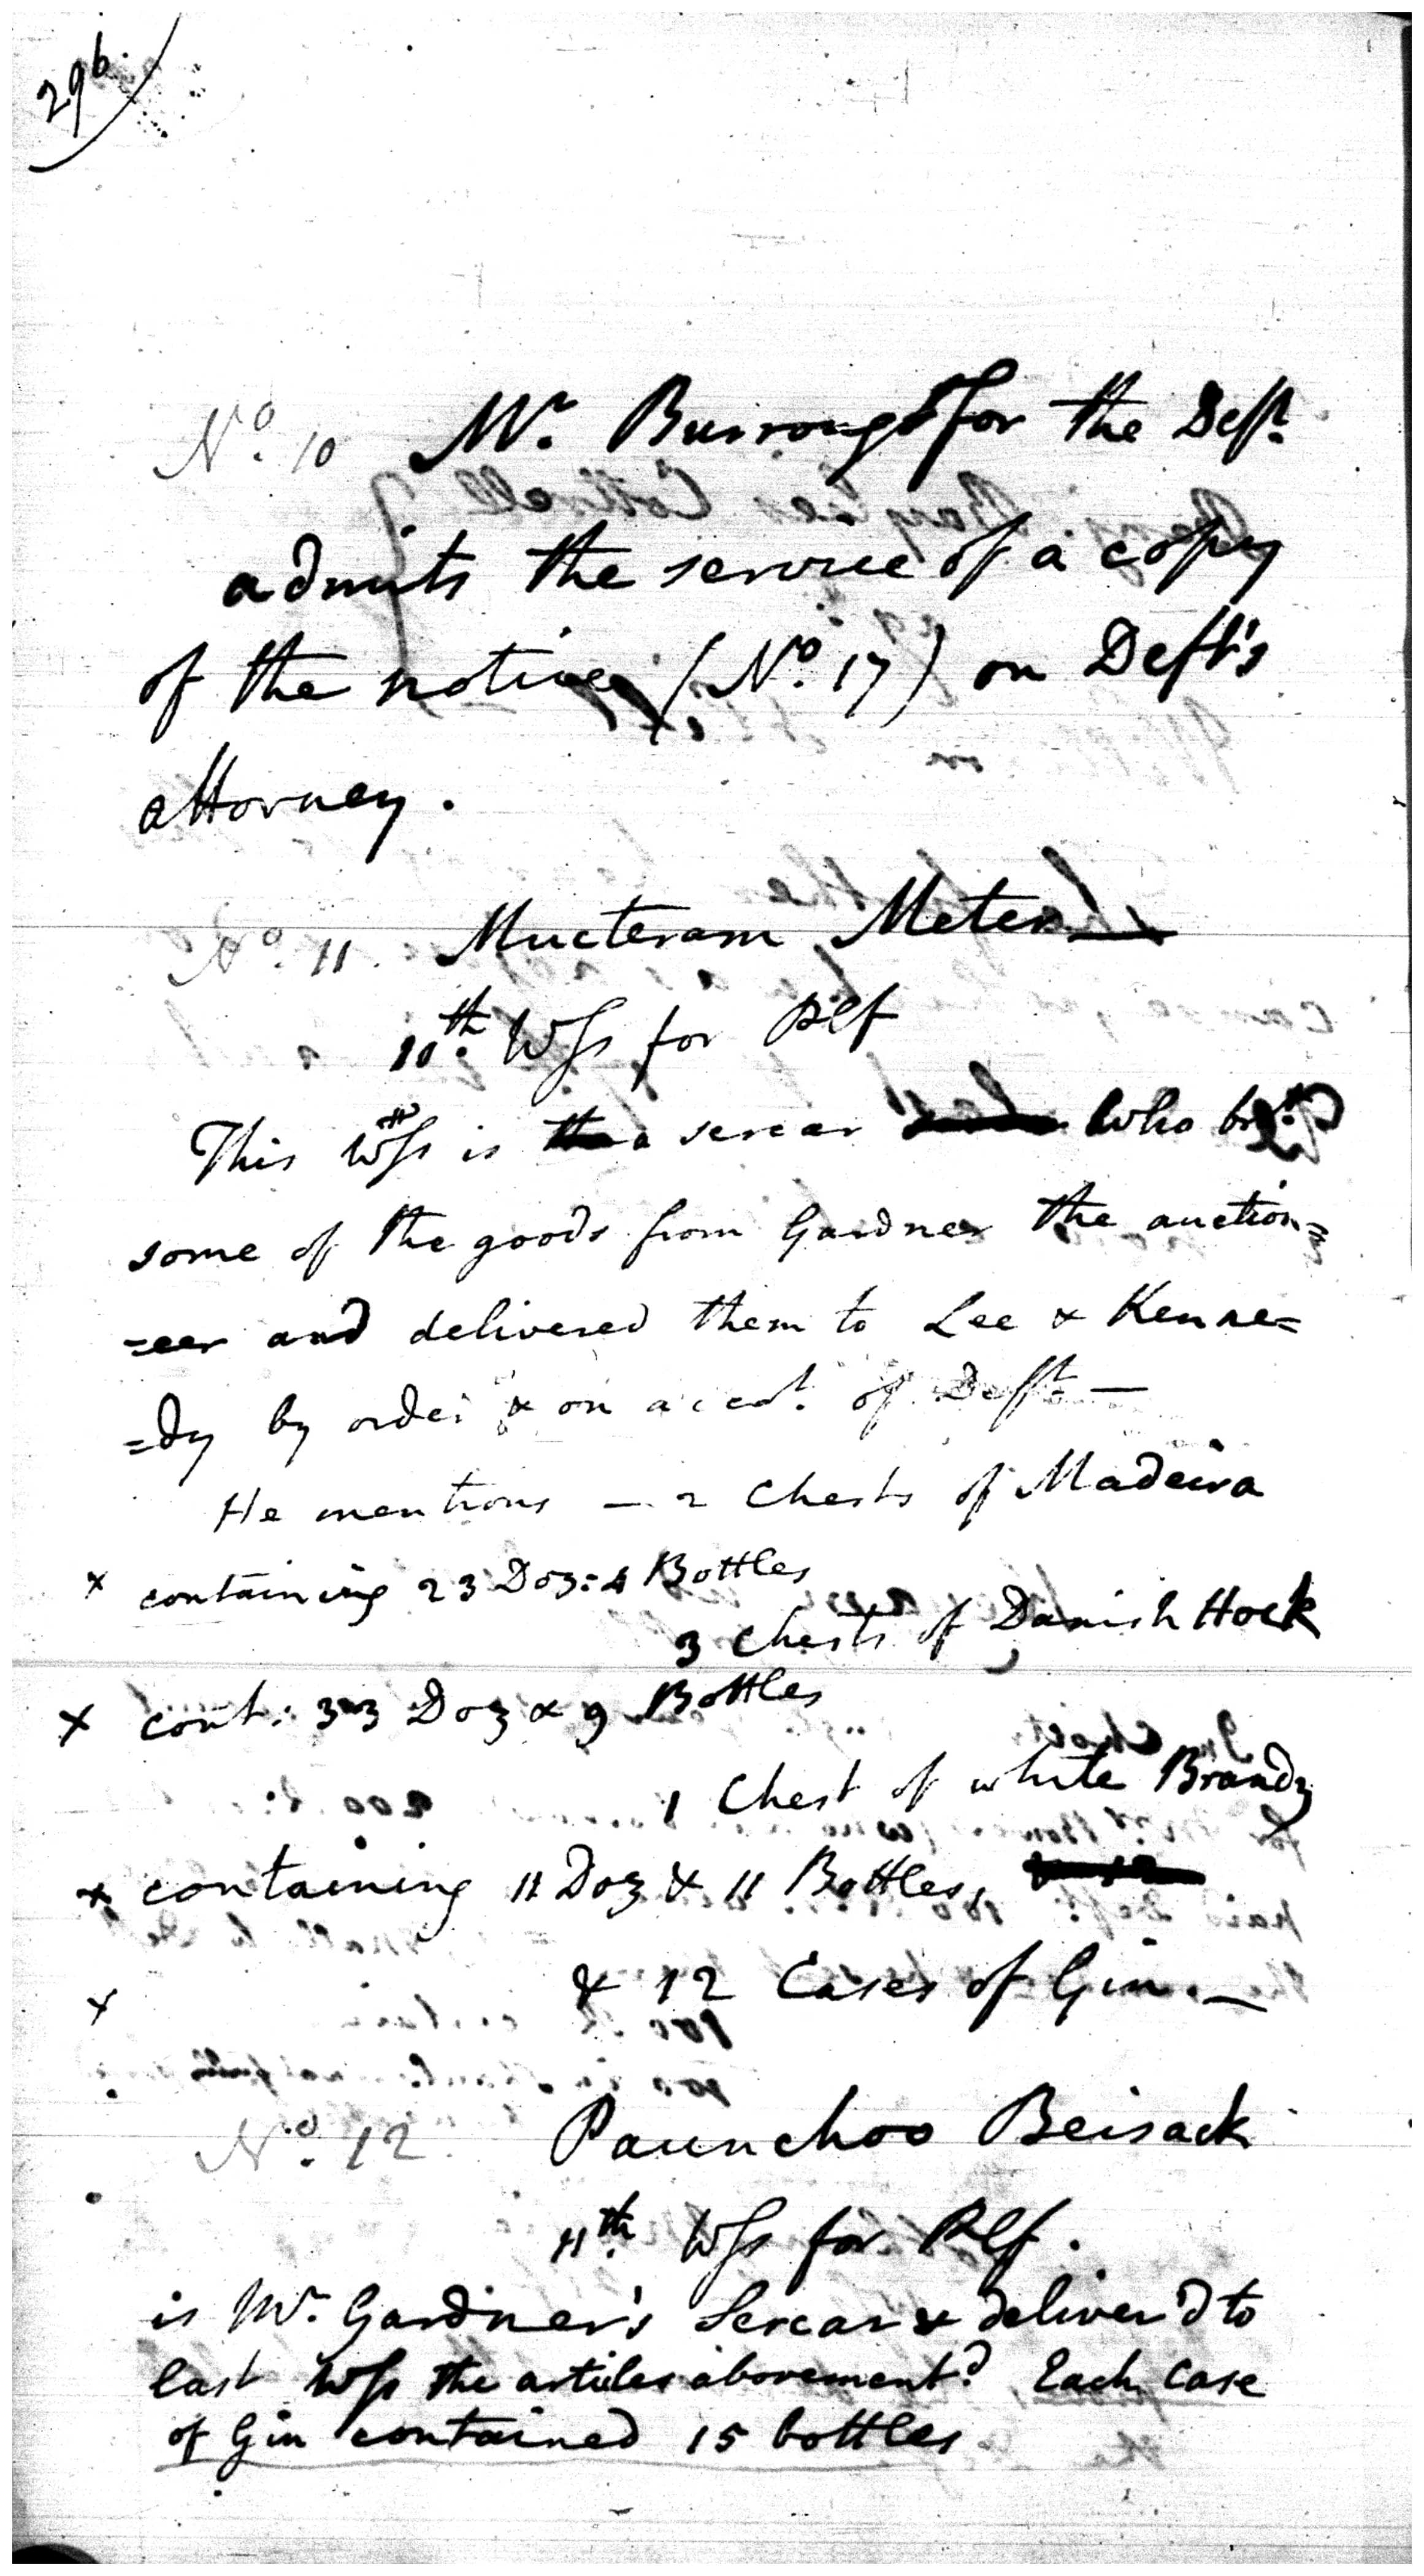 296.
No. 10 Mr. Burroughs for the Deft.
admits the service of a copy
of the notice (No. 17) on Deft's
attorney.
No. 11. Mucteram Meter
10th. Wss for Plf
This Wss is a sercar who brot.
some of the goods from Gardner the auction=
=eer and delivered them to Lee & Kenne=
=dy by order & on accot. of Deft. —
He mentions — 2 Chests of Madeira
x containing 23 Doz: 4 Bottles
3 chests of Danish Hock
x cont: 33 Doz & 9 Bottles
1 Chest of white Brandy
x containing 11 Doz & 11 Bottles,
x & 12 Cases of Gin. —
No. 12. Paunchoo Beisack
11th. Wss for Plf.
is Mr. Gardner's Sercar & deliver'd to
last Wss the articles abovementd. Each Case
of Gin contained 15 bottles